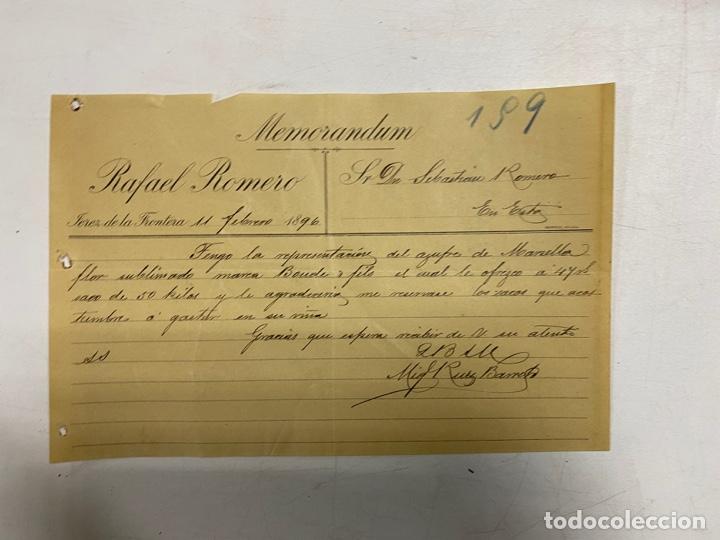 199
Memorandum
Rafael Romero
Sr Dn Sebastian Romero
En Esta
Jerez de la Frontera 11 febrero 1896
Tengo la representación del azufre de Marsella
flor sublimado marca Boude & fils el cual le ofrezco a 47 rs
saco de 50 kilos y le agradeceria me reservase los sacos que acos
tumbre á gastar en su viña
Gracias que espera recibir de V su atento
SS
Q B S M
Migl Ruiz Barreto
todocoleccion
todocoleccion.net